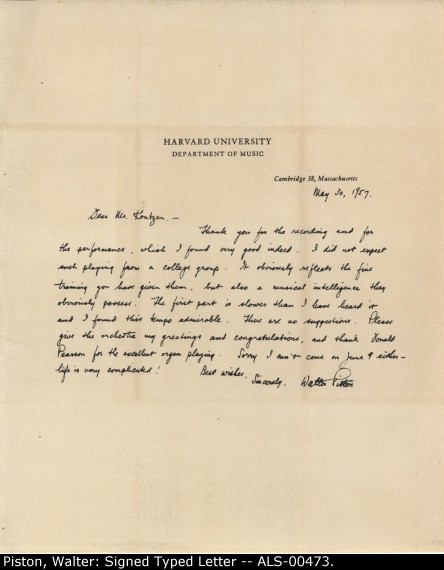 HARVARD UNIVERSITY
DEPARTMENT OF MUSIC
Cambridge 38, Massachusetts
May 30, 1957.
Dear Mr. Kontzen, —
Thank you for the recording and for
the performance, which I found very good indeed. I did not expect
such playing from a college group. It obviously reflects the fine
training you have given them, but also a musical intelligence they
obviously possess. The first part is slower than I have heard it
and I found this tempo admirable. There are no suggestions. Please
give the orchestra my greetings and congratulations, and thank Donald
Pearson for the excellent organ playing. Sorry I can't come on June 9 either –
life is very complicated!
Best wishes,
Sincerely, Walter Piston
Piston, Walter: Signed Typed Letter -- ALS-00473.